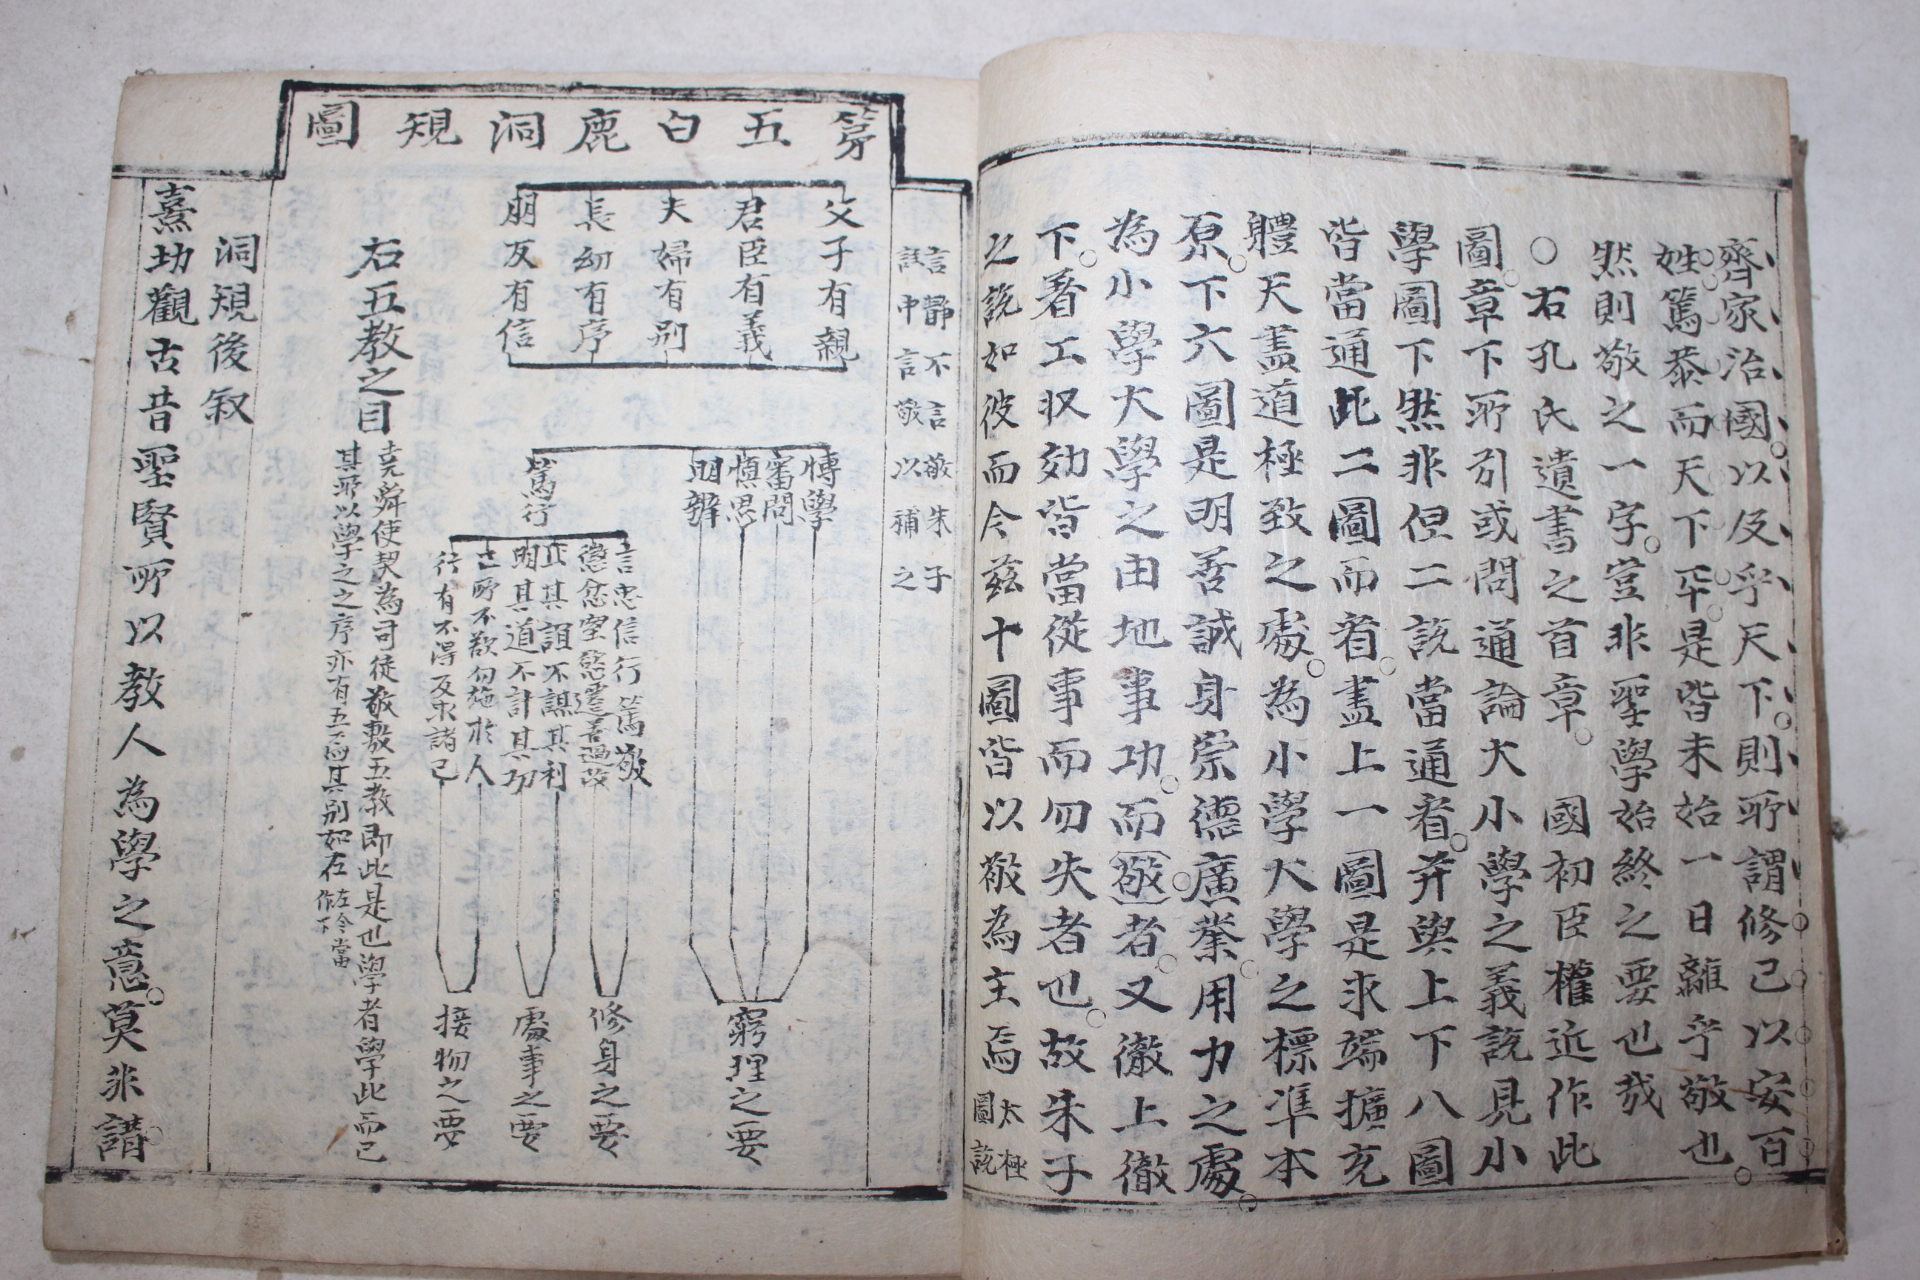 齊家治國以及乎天下則所謂修己以安百
姓篤恭而天下平是皆未始一日離乎敬也
然則敬之一字豈非聖學始終之要也哉
○右孔氏遺書之首章 國初臣權近作此
圖章下所引或問通論大小學之義說見小
學圖下然非但二說當通看并與上下八圖
皆當通此二圖而看盖上一圖是求端擴充
體天盡道極致之處為小學大學之標準本
原下六圖是明善誠身崇德廣業用力之處
為小學大學之由地事功而敬者又徹上徹
下着工収効皆當從事而勿失者也故朱子
之說如彼而今玆十圖皆以敬為主焉
太極
圖說
言靜不言敬朱子
註中言敬以補之
第五白鹿洞規圖
父子有親
君臣有義
夫婦有別
長幼有序
朋友有信
右五教之目
堯舜使契為司徒敬敷五教即此是也學者學此而已
其所以學之之序亦有五焉其別如左
左今當
作下
博學
審問
慎思
明辨
篤行
言忠信行篤敬
懲忿窒慾遷善改過
正其誼不謀其利
明其道不計其功
己所不欲勿施於人
行有不得反求諸己
窮理之要
修身之要
處事之要
接物之要
洞規後叙
熹竊觀古昔聖賢所以教人為學之意莫非講